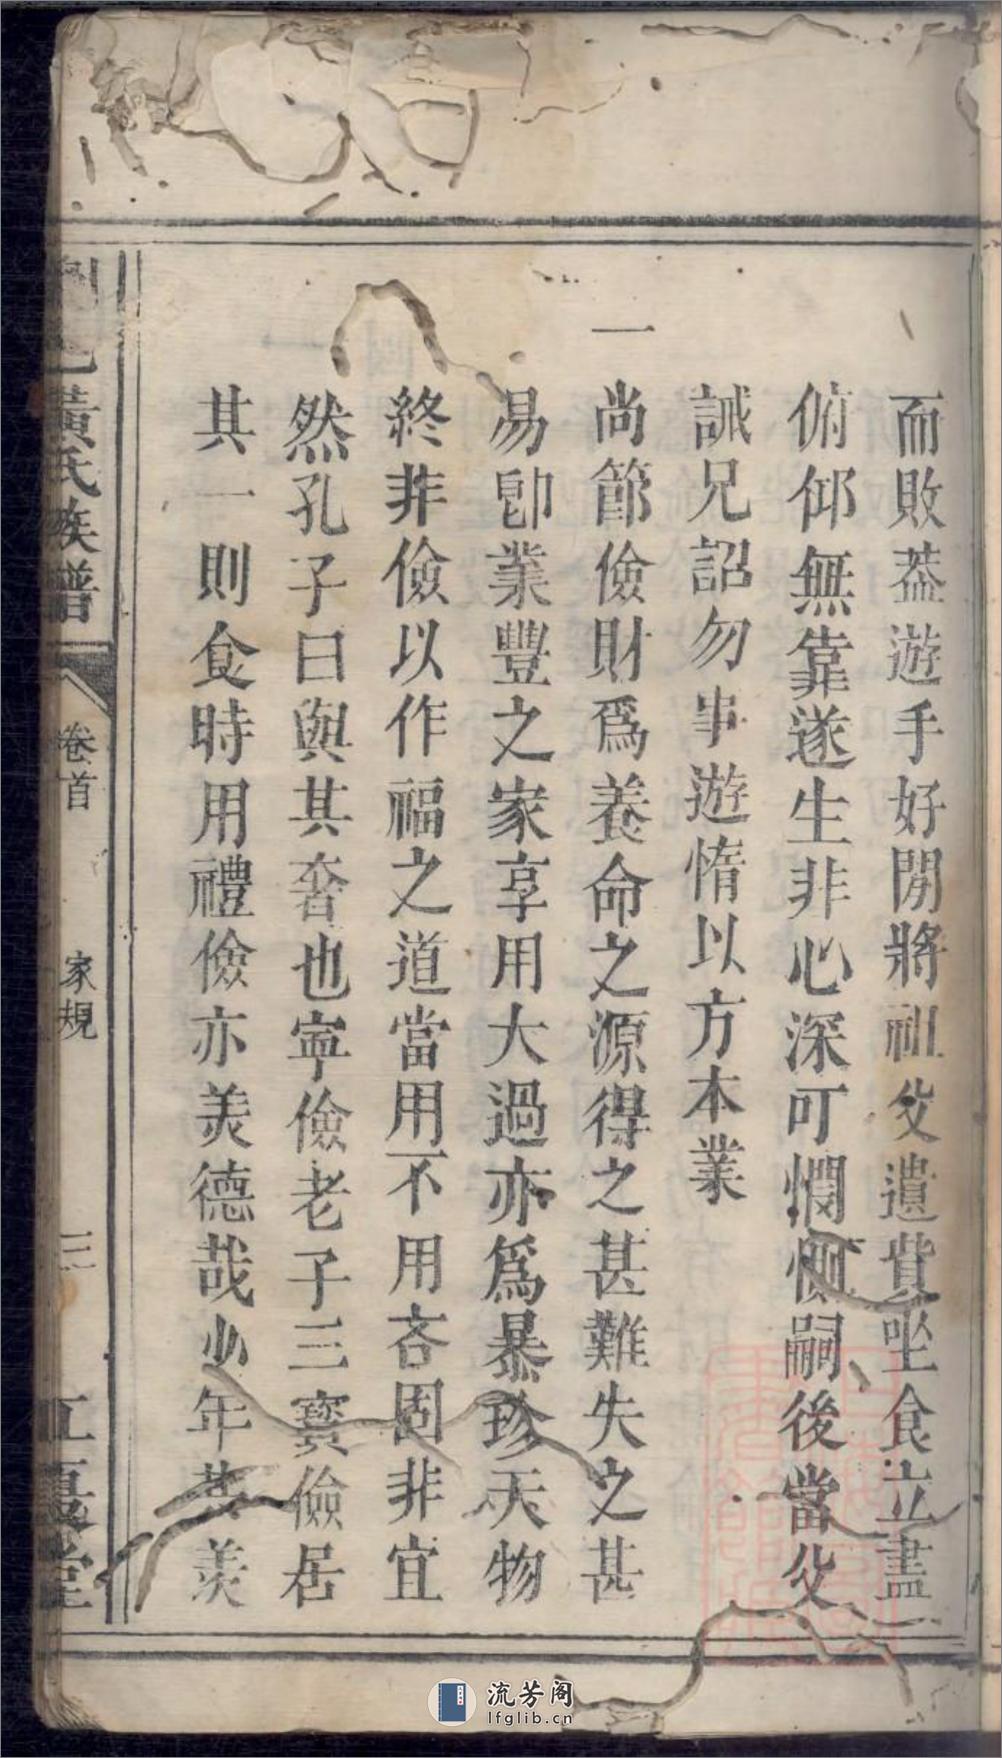 而敗葢遊手好閒將祖父遺貲坐食立盡一
俯仰無靠遂生非心深可憫惻嗣後當父
誡兄詔勿事遊惰以方本業
一
尚節儉財爲養命之源得之甚難失之甚
易卽業豐之家享用大過亦爲暴殄天物
終非儉以作福之道當用不用吝固非宜
然孔子曰與其奢也寧儉老子三寳儉居
其一則食時用禮儉亦美德哉少年其美
邑黃氏族譜
卷首
家規
三
江夏堂
流芳阁
lfglib.cn